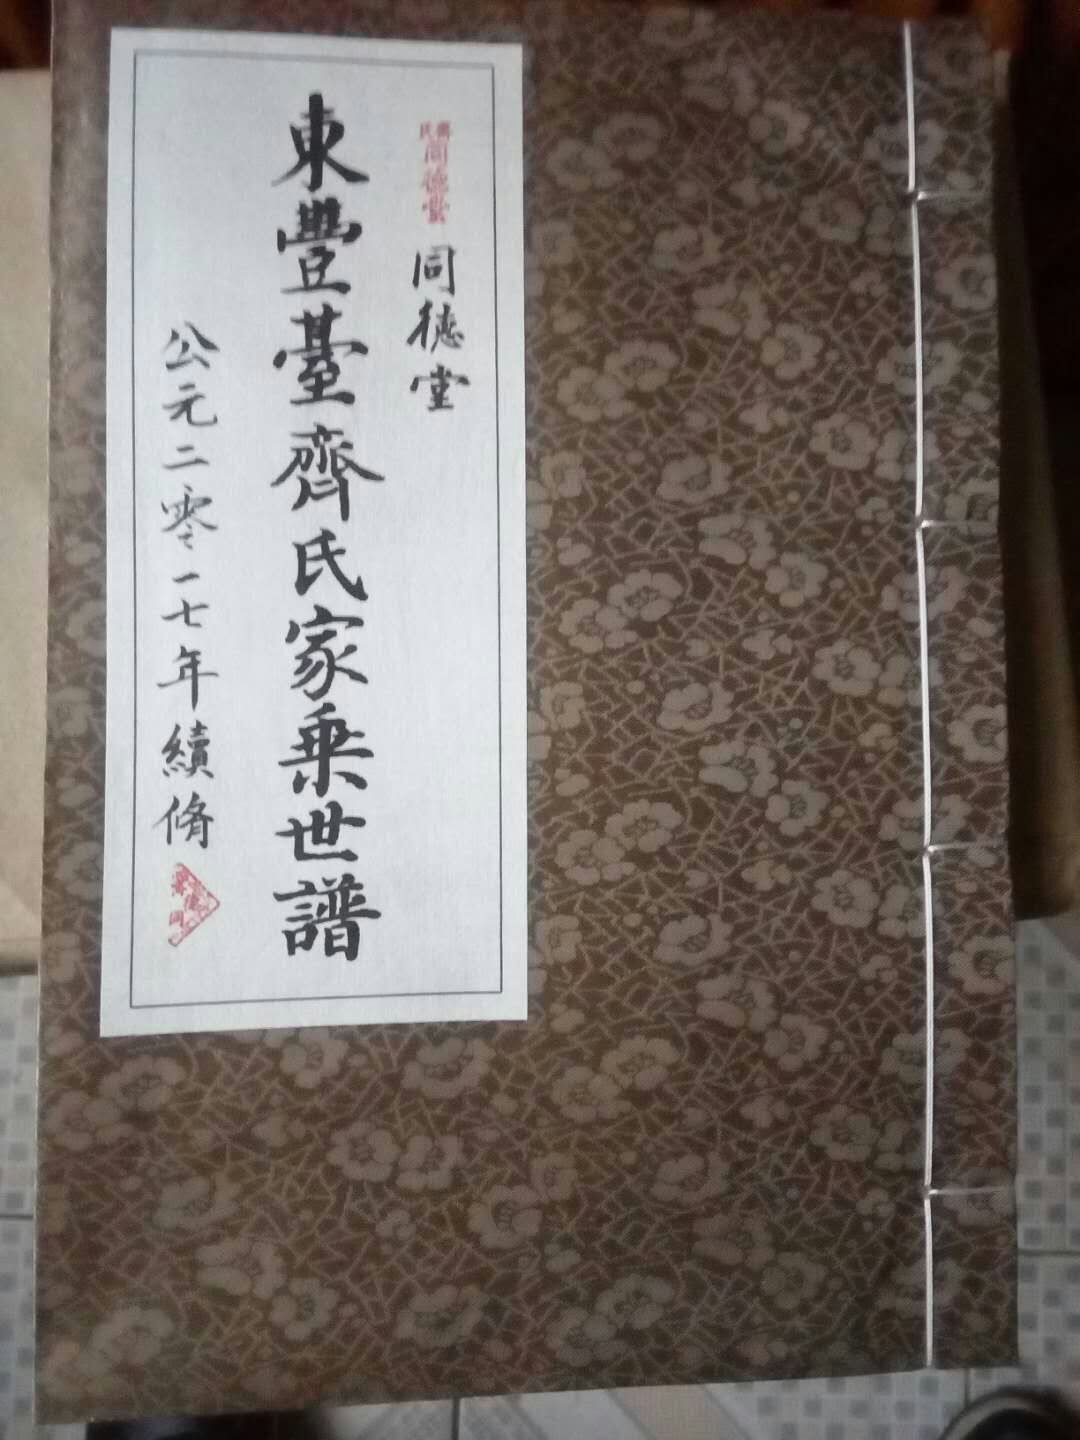 齊氏同德堂
同德堂
東豐臺齊氏家乗世譜
公元二零一七年續脩